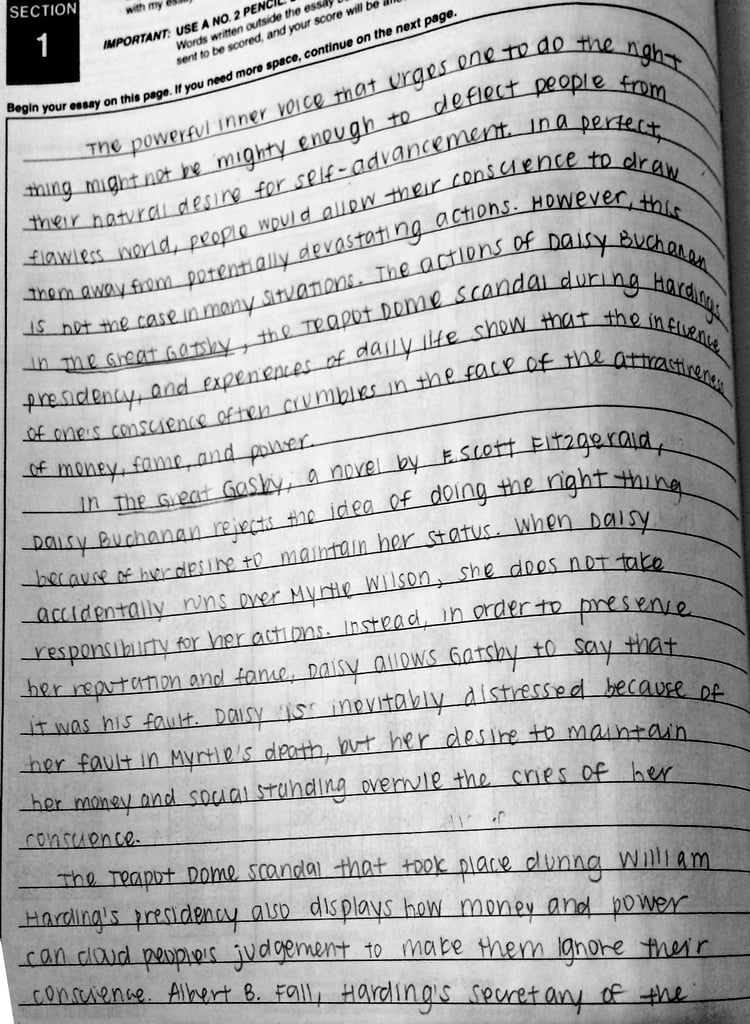 SECTION
1
with my essay
IMPORTANT: USE A NO. 2 PENCIL.
Words written outside the essay
sent to be scored, and your score will be
Begin your essay on this page. If you need more space, continue on the next page.
The powerful inner voice that urges one to do the right
thing might not be mighty enough to deflect people from
their natural desire for self-advancement. In a perfect,
flawless world, people would allow their conscience to draw
them away from potentially devastating actions. However, this
is not the case in many situations. The actions of Daisy Buchanan
in The Great Gatsby, the Teapot Dome scandal during Hardings
presidency, and experiences of daily life show that the influence
of one's conscience often crumbles in the face of the attractiveness
of money, fame, and power.
In The Great Gasby, a novel by F. Scott Fitzgerald,
Daisy Buchanan rejects the idea of doing the right thing
because of her desire to maintain her status. When Daisy
accidentally runs over Myrtle Wilson, she does not take
responsibility for her actions. Instead, in order to preserve
her reputation and fame, Daisy allows Gatsby to say that
it was his fault. Daisy is inevitably distressed because of
her fault in Myrtle's death, but her desire to maintain
her money and social standing overrule the cries of her
conscience.
The Teapot Dome scandal that took place during William
Harding's presidency also displays how money and power
can cloud people's judgement to make them ignore their
conscience. Albert B. Fall, Harding's secretary of the